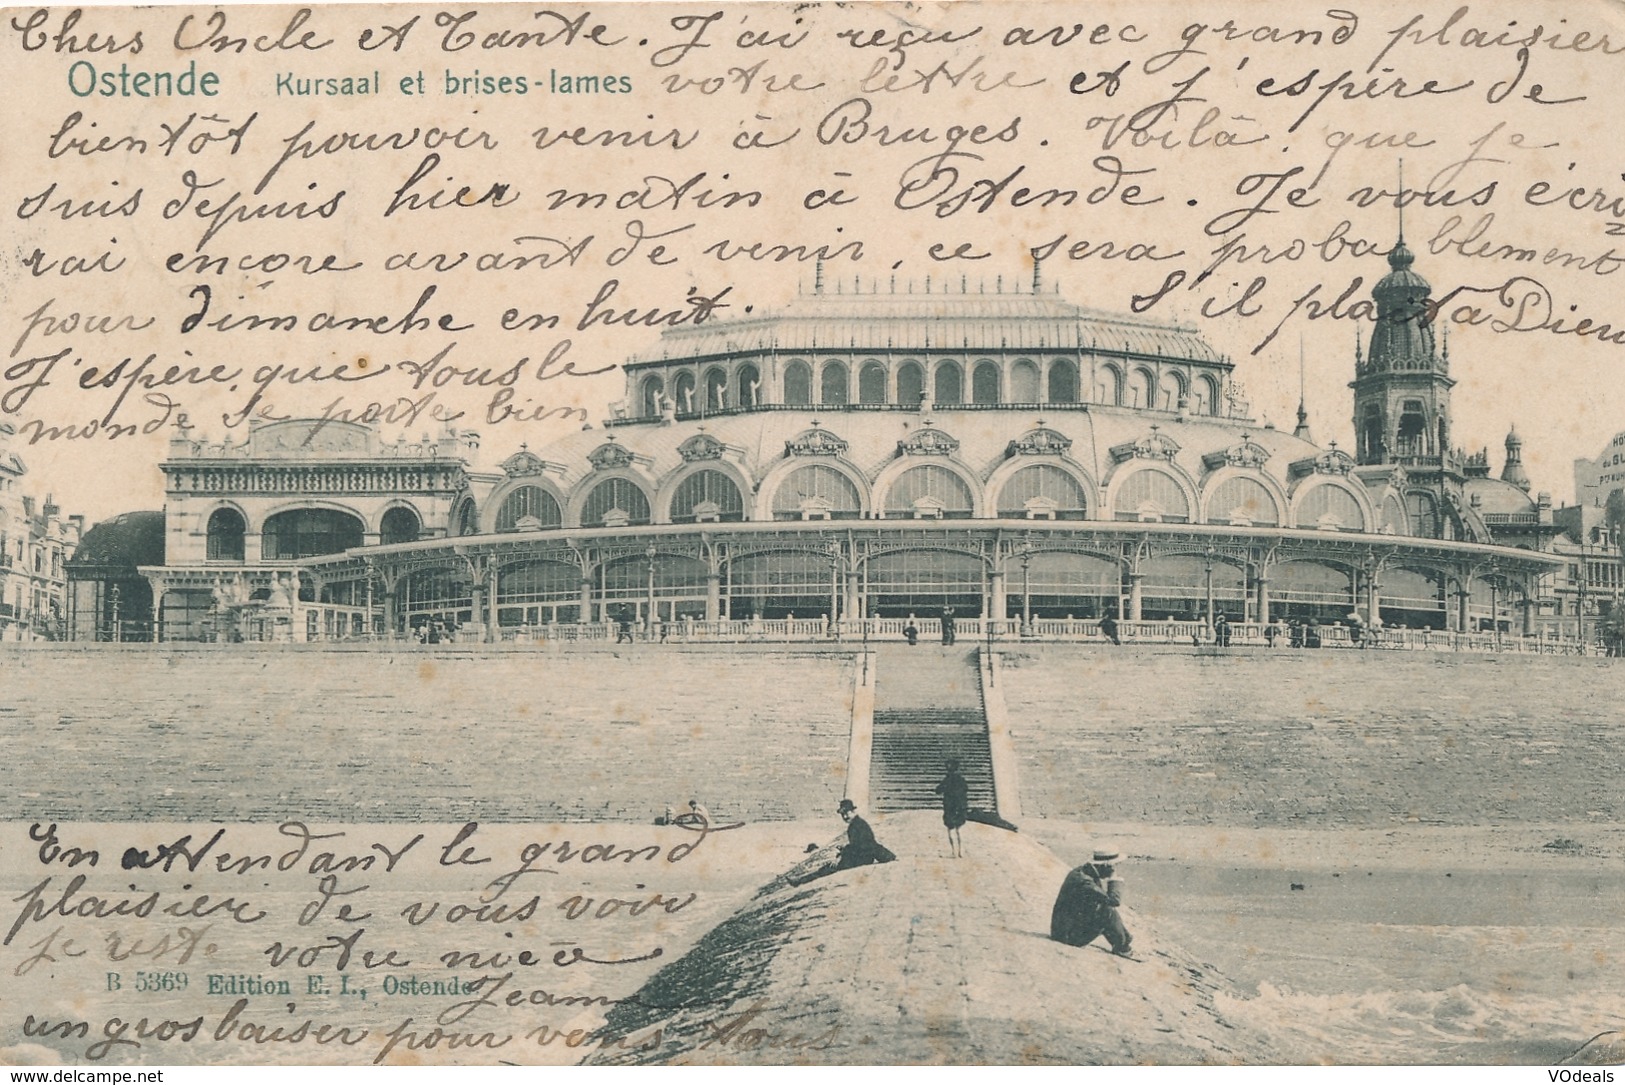 Chers Oncle et Tante. J'ai reçu avec grand plaisier
Ostende Kursaal et brises-lames votre lettre et j'espère de
bientôt pouvoir venir à Bruges. Voilà que je
suis depuis hier matin à Ostende. Je vous écri
rai encore avant de venir, ce sera probablement
pour dimanche en huit. S'il plait a Dieu
J'espère que tous le
monde se porte bien
En attendant le grand
plaisier de vous voir
je reste votre nièce
B 5369 Edition E. I., Ostende
un gros baiser pour vous tous
www.delcampe.net
VOdeals